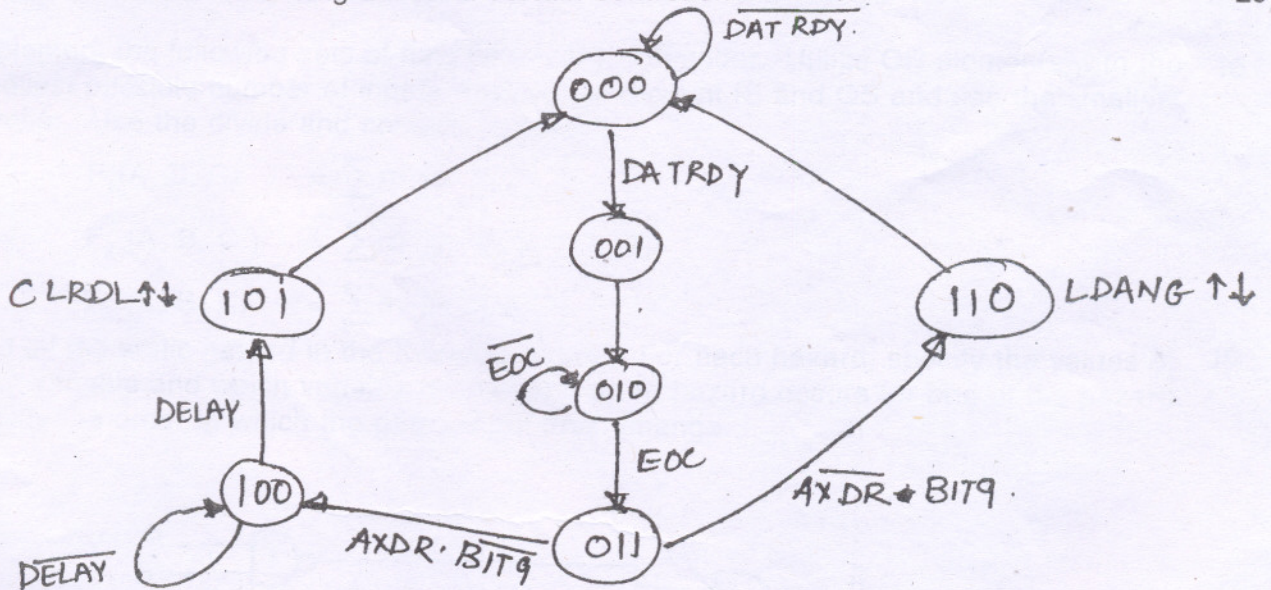 DATRDY.
000
DATRDY
001
CLRDL↑↓
101
110
LDANG ↑↓
EOC
010
DELAY
EOC
100
AXDR • BIT9.
DELAY
AXDR. BIT9
011